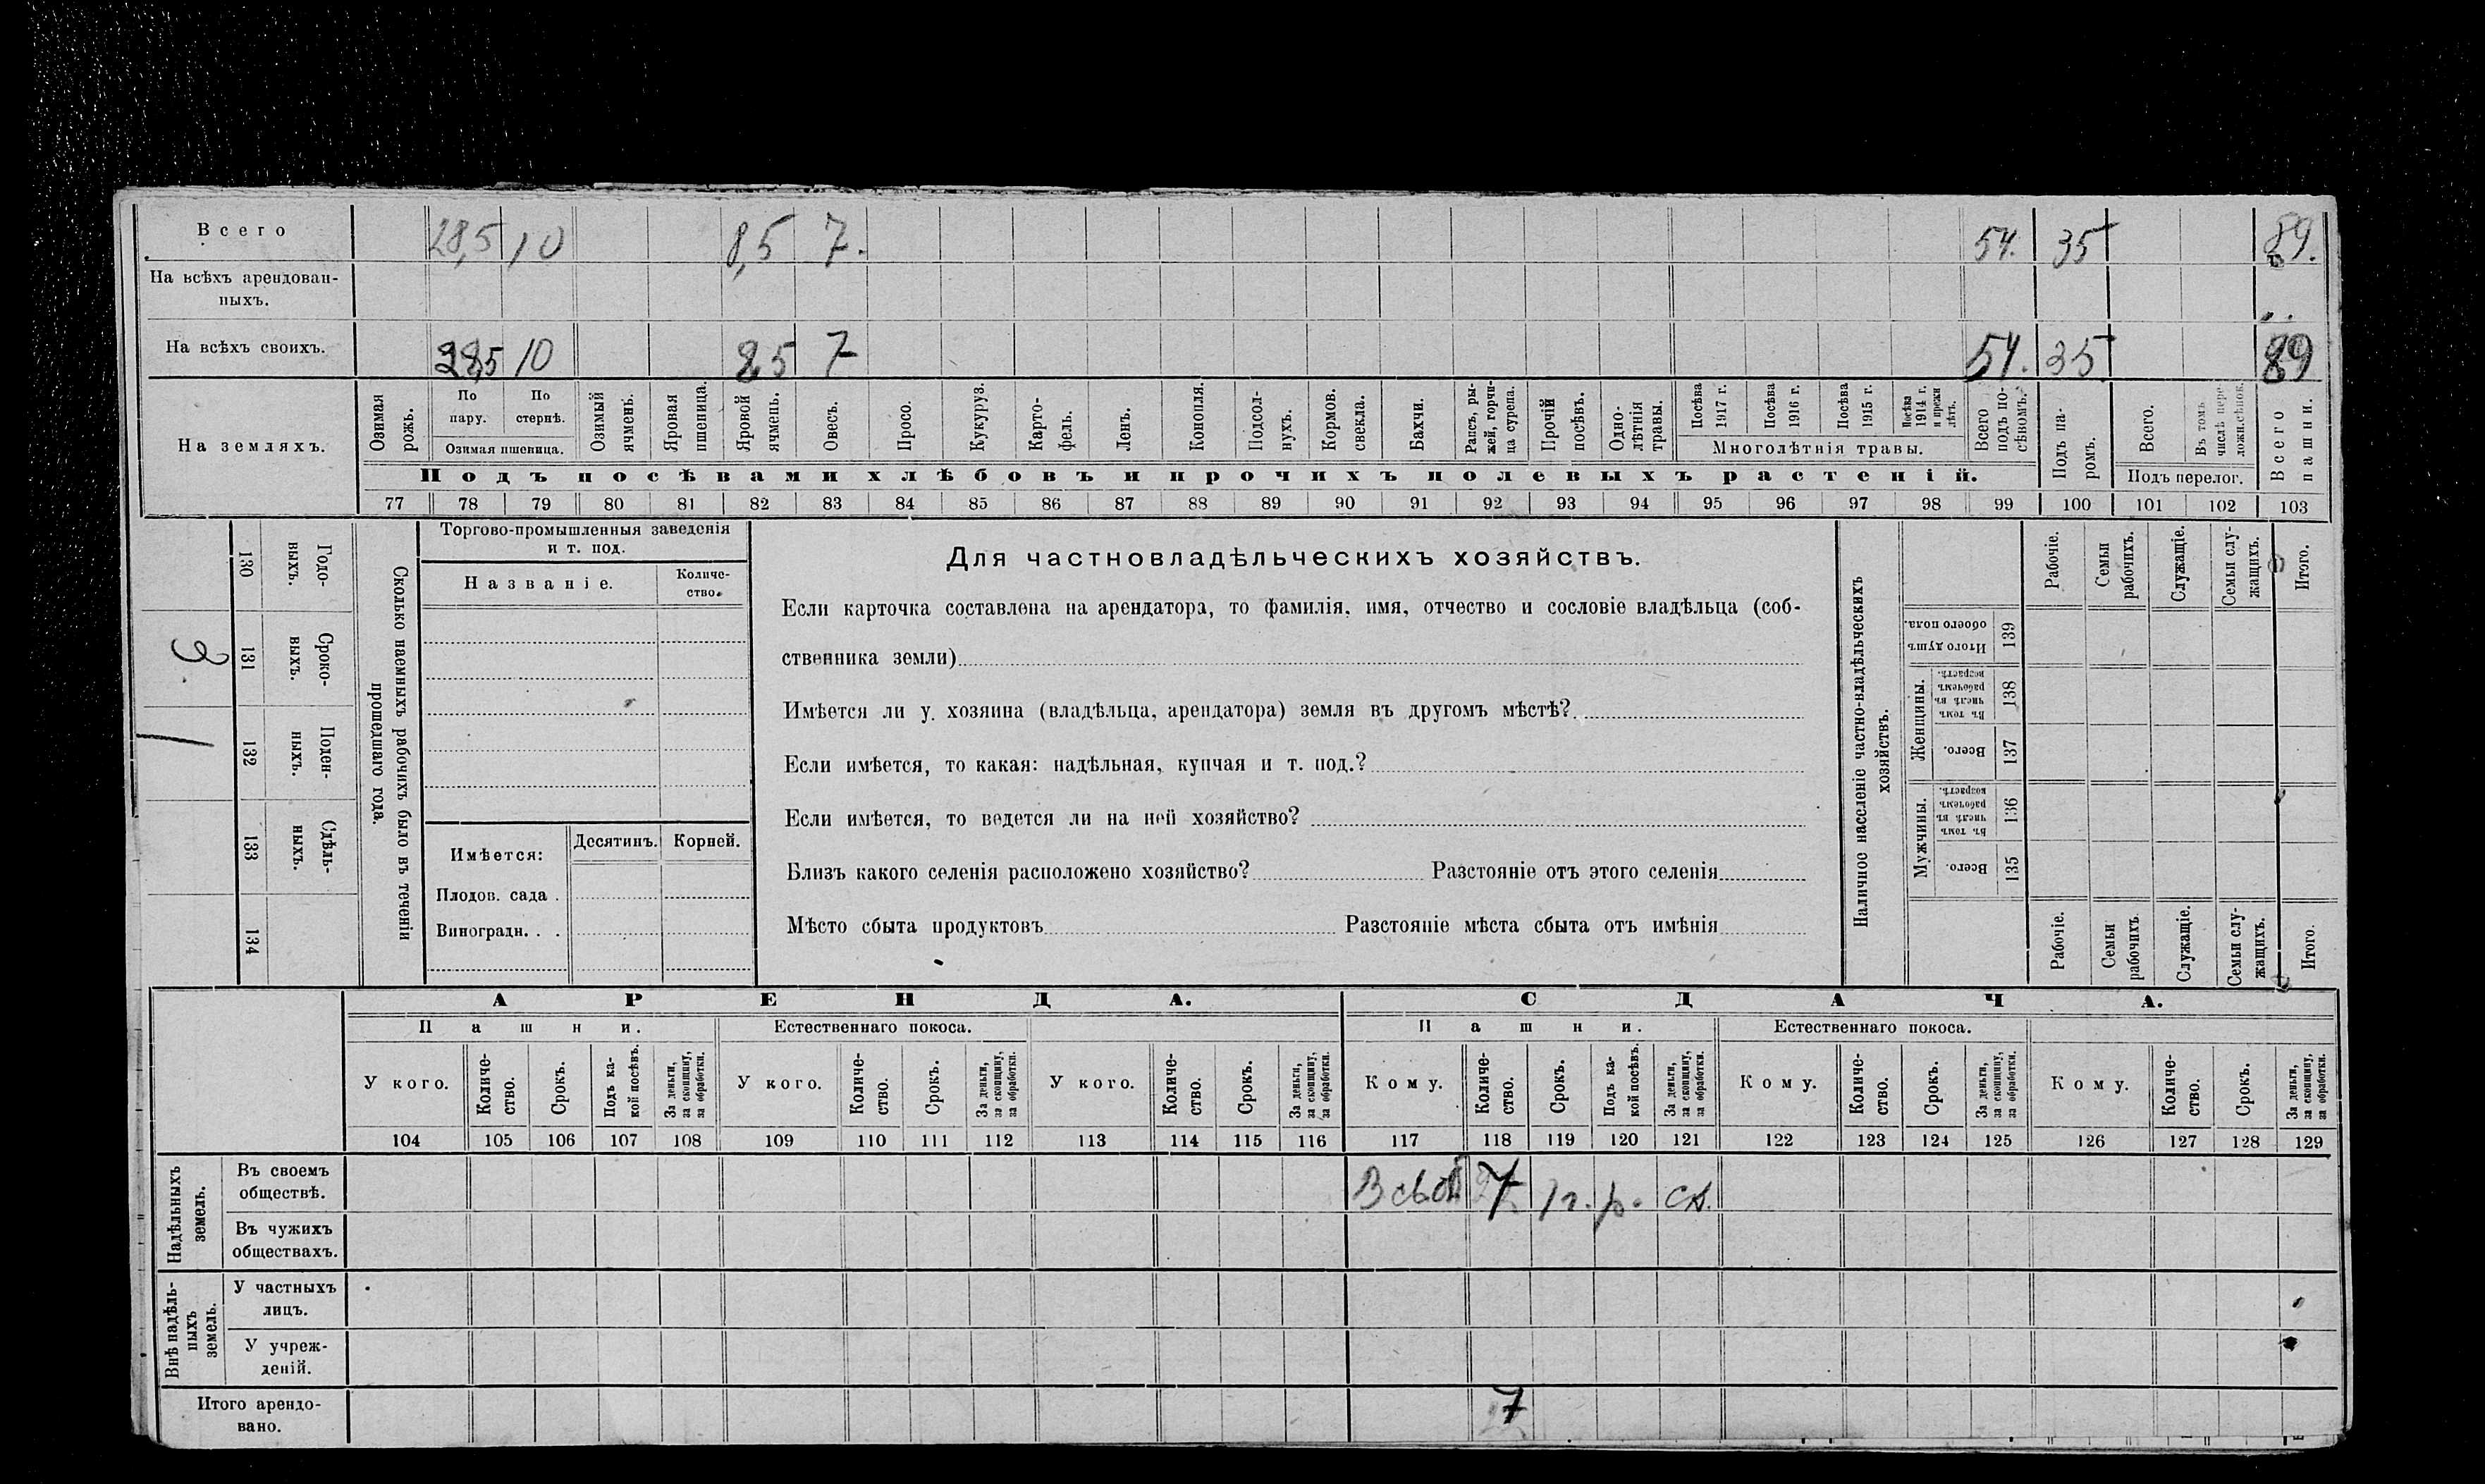 Всего 28,5 10 8,5 7. 54. 35 89.
На всѣхъ арендован-
ныхъ.
На всѣхъ своихъ. 28,5 10 8,5 7 54. 35 89
На земляхъ.
Озимая рожь.
По пару.
По стернѣ.
Озимая пшеница.
Озимый ячмень.
Яровая пшеница.
Яровой ячмень.
Овесъ.
Просо.
Кукуруз.
Карто-
фель.
Ленъ.
Конопля.
Подсол-
нухъ.
Кормов. свекла.
Бахчи.
Рапсъ, ры-
жей, горчи-
ца сурепа.
Прочій посѣвъ.
Одно-
лѣтнія травы.
Посѣва 1917 г.
Посѣва 1916 г.
Посѣва 1915 г.
Посѣва 1914 г. и прежн лѣтъ.
Многолѣтнія травы.
Всего подъ по-
сѣвомъ.
Подъ посѣвами хлѣбовъ и прочихъ полевыхъ растеній.
Подъ па-
ромъ.
Всего.
Въ томъ числѣ пере-
Подъ перелог.
Всего пашни.
77 78 79 80 81 82 83 84 85 86 87 88 89 90 91 92 93 94 95 96 97 98 99 100 101 102 103
Сколько наемныхъ рабочихъ было въ теченіи
прошедшаго года.
Годо-
выхъ.
130
Сроко-
выхъ.
131
Поден-
ныхъ.
132
Сдѣль-
ныхъ.
133
134
Торгово-промышленныя заведенія
и т. под.
Названіе.
Количе-
ство.
Имѣется: Десятинъ. Корней.
Плодов. сада .
Виноградн. . .
Для частновладѣльческихъ хозяйствъ.
Если карточка составлена на арендатора, то фамилія, имя, отчество и сословіе владѣльца (соб-
ственника земли)
Имѣется ли у хозяина (владѣльца, арендатора) земля въ другомъ мѣстѣ?
Если имѣется, то какая: надѣльная, купчая и т. под.?
Если имѣется, то ведется ли на ней хозяйство?
Близъ какого селенія расположено хозяйство? Разстояніе отъ этого селенія
Мѣсто сбыта продуктовъ Разстояніе мѣста сбыта отъ имѣнія
Наличное населеніе частно-владѣльческихъ
хозяйствъ.
Рабочіе.
Семьи рабочихъ.
Служащіе.
Семьи слу-
жащихъ.
Итого.
Итого душъ
обоего пола.
139
Женщины.
Въ томъ числѣ въ рабочемъ возрастѣ.
138
Всего.
137
Мужчины.
Въ томъ числѣ въ рабочемъ возрастѣ.
136
Всего.
135
Рабочіе.
Семьи рабочихъ
Служащіе.
Семьи слу-
жащихъ.
Итого.
АРЕНДА. СДАЧА.
Пашни. Естественнаго покоса. Пашни. Естественнаго покоса.
У кого.
Количе-
ство.
Срокъ.
Подъ ка-
кой посѣвъ.
За деньги,
за скопщину,
за обработки.
У кого.
Количе-
ство.
Срокъ.
За деньги,
за скопщину,
за обработки.
У кого.
Количе-
ство.
Срокъ.
За деньги,
за скопщину,
за обработки.
Кому.
Количе-
ство.
Срокъ.
Подъ ка-
кой посѣвъ.
За деньги,
за скопщину,
за обработки.
Кому.
Количе-
ство.
Срокъ.
За деньги,
за скопщину,
за обработки.
Кому.
Количе-
ство.
Срокъ.
За деньги,
за скопщину,
за обработки.
104 105 106 107 108 109 110 111 112 113 114 115 116 117 118 119 120 121 122 123 124 125 126 127 128 129
Надѣльныхъ
земель.
Въ своемъ
обществѣ.
7 1 г. р. ск.
Въ чужихъ
обществахъ.
Внѣ надѣль-
ныхъ
земель.
У частныхъ
лицъ.
У учреж-
деній.
Итого арендо-
вано.
7